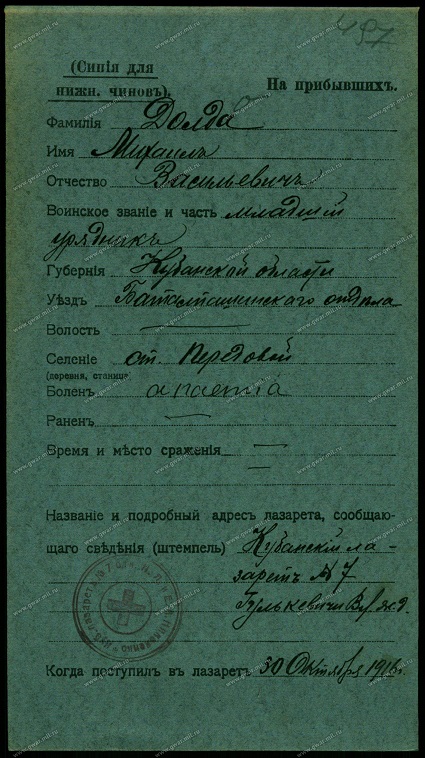 497
(Синія для
нижн. чиновъ).
На прибывшихъ.
Фамилія Долда
Имя Михаилъ
Отчество Васильевичъ
Воинское званіе и часть младшій
урядникъ
Губернія Кубанской области
Уѣздъ Баталпашинскаго отдѣла
Волость
Селеніе ст. Передовой
(деревня, станица)
Боленъ
Раненъ
Время и мѣсто сраженія
Названіе и подробный адресъ лазарета, сообщаю-
щаго свѣдѣнія (штемпель) Кубанскій ла-
заретъ № 7
Гулькевичи Вл. ж. д.
Когда поступилъ въ лазаретъ 30 Октября 1916 г.
www.gwar.mil.ru